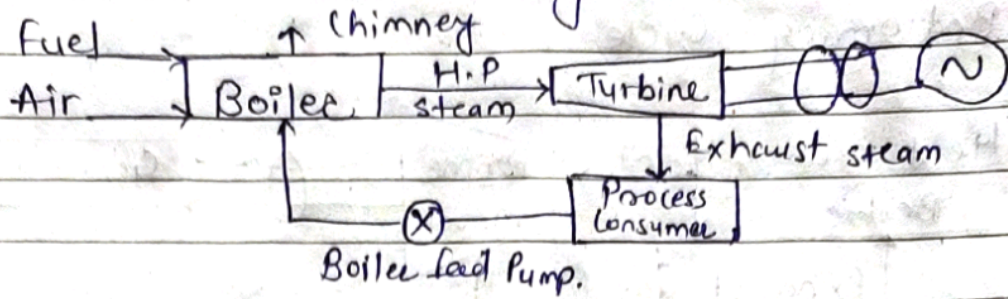 Chimney
Fuel
Air
Boiler
H.P
steam
Turbine
~
Exhaust steam
Process
Consumer
X
Boiler feed Pump.